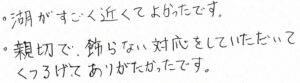 ・湖がすごく近くてよかったです。
・親切で、飾らない対応をしていただいて
くつろげてありがたかったです。